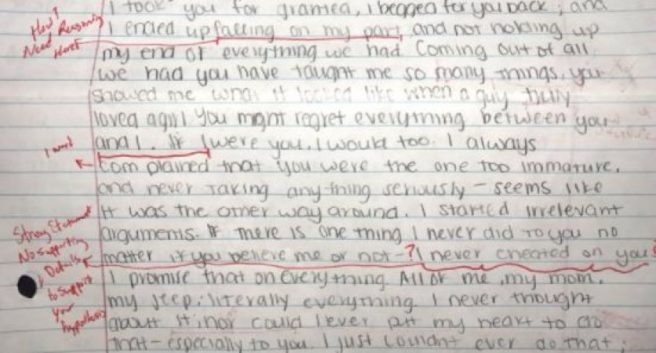 I took you for granted, I begged for you back, and
How? Need Reasoning Here!
I ended up falling on my part, and not holding up
my end of everything we had. Coming out of all
we had you have taught me so many things, you
showed me what it looked like when a guy truly
loved a girl. You might regret everything between you
1 word
and I. If I were you, I would too. I always
complained that you were the one too immature,
and never taking anything seriously - seems like
it was the other way around. I started irrelevant
Strong Statement No Supporting Details to support your hypothesis
arguments. If there is one thing I never did to you no
matter if you believe me or not -? I never cheated on you.
I promise that on everything. All of me, my mom,
my jeep, literally everything. I never thought
about it, nor could I ever put my heart to do
that - especially to you. I just couldnt ever do that.